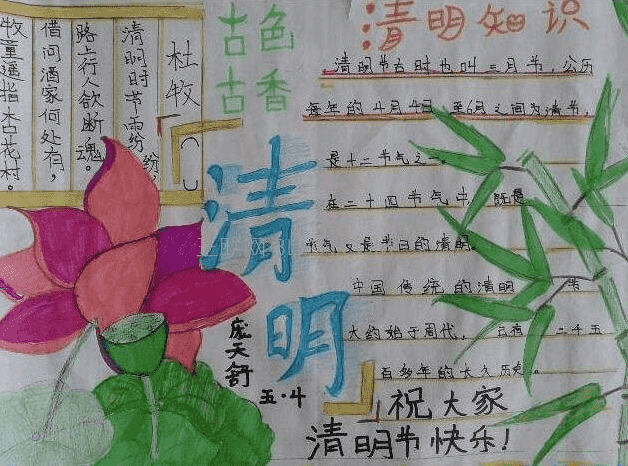 杜牧
清明时节雨纷纷，
路上行人欲断魂。
借问酒家何处有，
牧童遥指杏花村。
古色
古香
清明
庞天舒
五·4
清明知识
清明节古时也叫三月节，公历
每年的4月4日至6日之间为清节，
是十二节气之一。
在二十四节气中，既是
节气又是节日的清明
中国传统的清明节
大约始于周代，二千五
百多年的长久历史。
祝大家
清明节快乐！